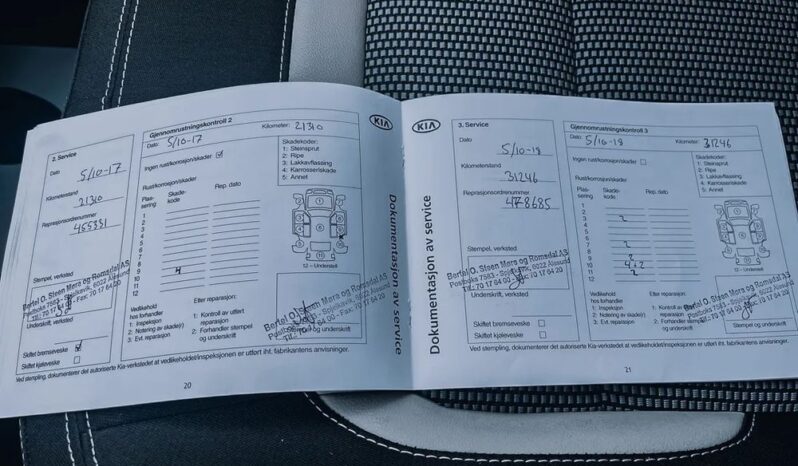 2. Service
Dato
5/10-17
Kilometerstand
21310
Reprasjonsordrenummer
455331
Stempel, verksted
Bertel O. Steen Møre og Romsdal AS
Postboks 7583 - Spjelkavik, 6022 Ålesund
Tlf.: 70 17 64 00 - Fax: 70 17 64 20
Underskrift, verksted
Skiftet bremseveske
Skiftet kjøleveske
Gjennomrustningskontroll 2
Dato
5/10-17
Kilometer:
21310
Ingen rust/korrosjon/skader
Rust/korrosjon/skader:
Plas-
sering
Skade-
kode
Rep. dato
1
2
3
4
5
6
7
8
9 4
10
11
12
Skadekoder:
1: Steinsprut
2: Ripe
3: Lakkavflassing
4: Karrosseriskade
5: Annet
12 – Understell
Vedlikehold
hos forhandler
1: Inspeksjon
2: Notering av skade(r)
3: Evt. reparasjon
Etter reparasjon:
1: Kontroll av utført
reparasjon
2: Forhandler stempel
og underskrift
Bertel O. Steen Møre og Romsdal AS
Postboks 7583 - Spjelkavik, 6022 Ålesund
Tlf.: 70 17 64 00 - Fax: 70 17 64 20
Stempel og underskrift
Ved stempling, dokumenterer det autoriserte Kia-verkstedet at vedlikeholdet/inspeksjonen er utført iht. fabrikantens anvisninger.
20
KIA
Dokumentasjon av service
KIA
Dokumentasjon av service
3. Service
Dato
5/10-18
Kilometerstand
31246
Reprasjonsordrenummer
478685
Stempel, verksted
Bertel O. Steen Møre og Romsdal AS
Postboks 7583 - Spjelkavik, 6022 Ålesund
Tlf.: 70 17 64 00 - Fax: 70 17 64 20
Underskrift, verksted
Skiftet bremseveske
Skiftet kjøleveske
Gjennomrustningskontroll 3
Dato
5/10-18
Kilometer:
31246
Ingen rust/korrosjon/skader
Rust/korrosjon/skader:
Plas-
sering
Skade-
kode
Rep. dato
1
2
3
4 2
5
6
7
8 2
9
10 4+2
11 2
12
Skadekoder:
1: Steinsprut
2: Ripe
3: Lakkavflassing
4: Karrosseriskade
5: Annet
12 – Understell
Vedlikehold
hos forhandler
1: Inspeksjon
2: Notering av skade(r)
3: Evt. reparasjon
Etter reparasjon:
1: Kontroll av utført
reparasjon
2: Forhandler stempel
og underskrift
Bertel O. Steen Møre og Romsdal AS
Postboks 7583 - Spjelkavik, 6022 Ålesund
Tlf.: 70 17 64 00 - Fax: 70 17 64 20
Stempel og underskrift
Ved stempling, dokumenterer det autoriserte Kia-verkstedet at vedlikeholdet/inspeksjonen er utført iht. fabrikantens anvisninger.
21